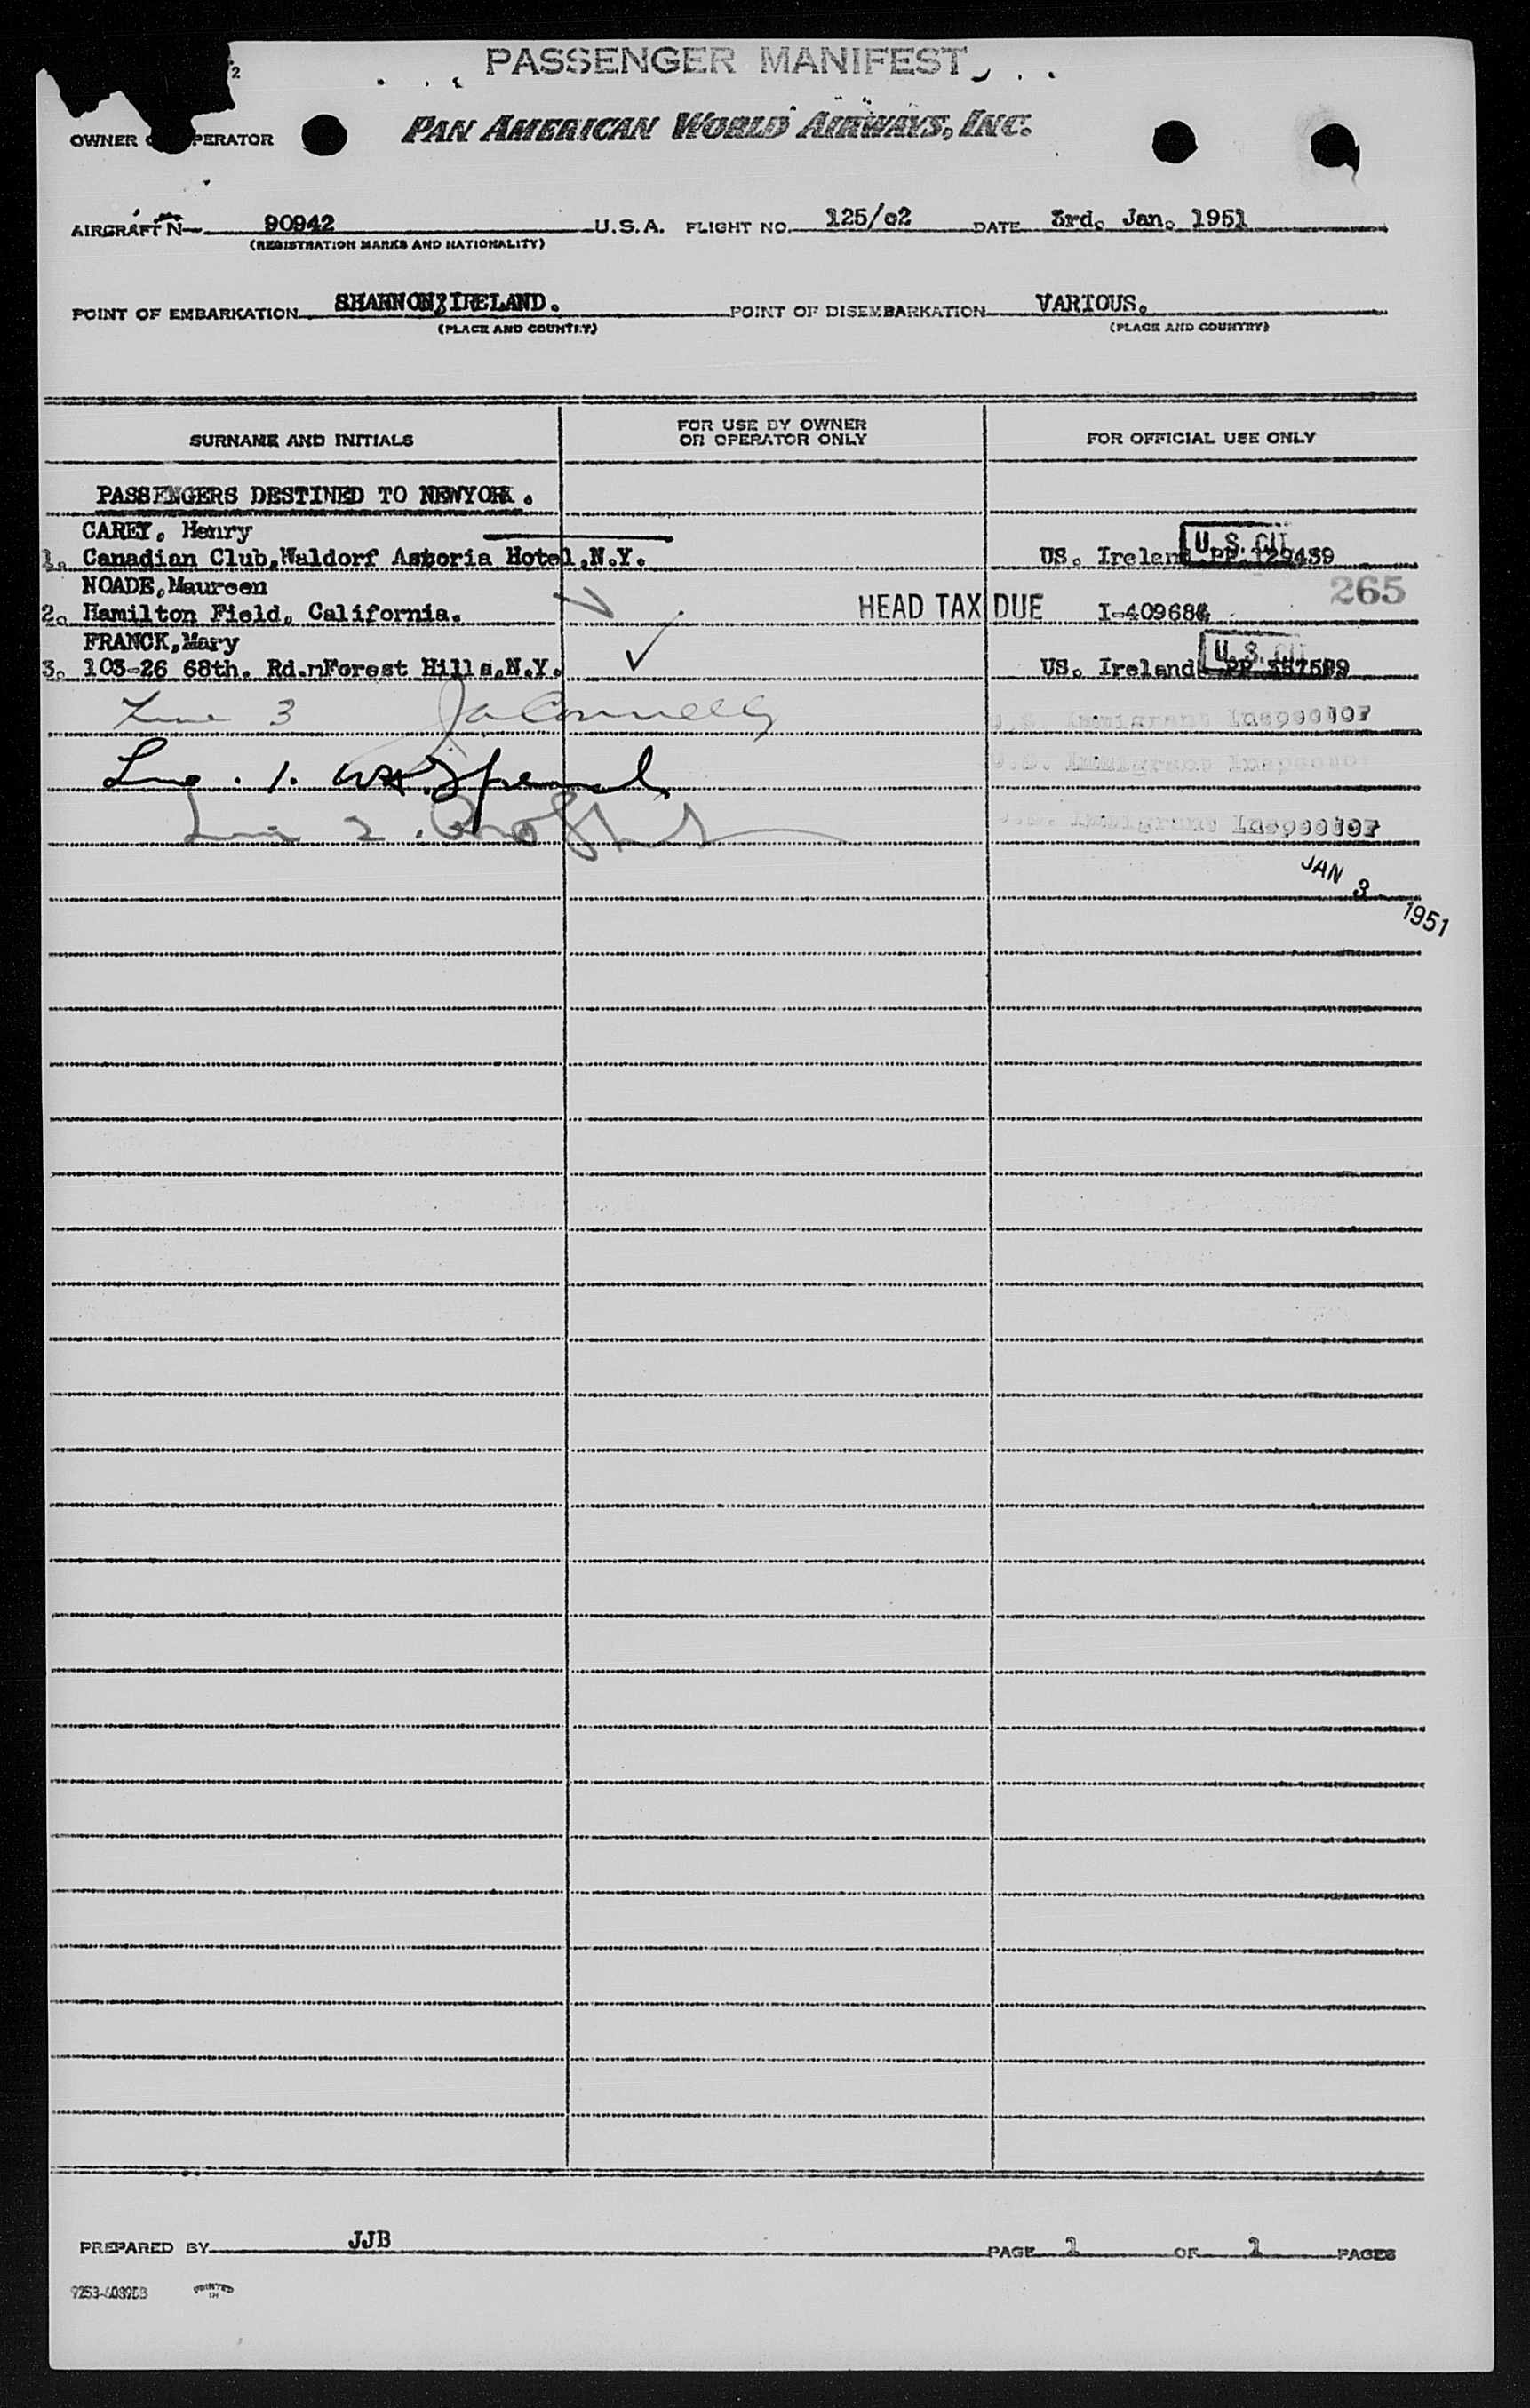 2
PASSENGER MANIFEST
OWNER OPERATOR
PAN AMERICAN WORLD AIRWAYS, INC.
AIRCRAFT N 90942 U.S.A. FLIGHT NO. 125/02 DATE 3rd. Jan. 1951
(REGISTRATION MARKS AND NATIONALITY)
POINT OF EMBARKATION SHANNON, IRELAND. POINT OF DISEMBARKATION VARIOUS.
(PLACE AND COUNTRY) (PLACE AND COUNTRY)
SURNAME AND INITIALS FOR USE BY OWNER OR OPERATOR ONLY FOR OFFICIAL USE ONLY
PASSENGERS DESTINED TO NEWYORK.
CAREY, Henry
1. Canadian Club, Waldorf Astoria Hotel, N.Y. US. Ireland PP.129439 U.S. CIT
NOADE, Maureen 265
2. Hamilton Field, California. HEAD TAX DUE I-409684
FRANCK, Mary
3. 103-26 68th. Rd. Forest Hills, N.Y. US. Ireland PP U.S. CIT
Line 3 Ja Connelly U.S. Immigrant Inspector
Line 1. U.S. Immigrant Inspector
Line 2. U.S. Immigrant Inspector
JAN 3 1951
PREPARED BY JJB PAGE 1 OF 1 PAGES
PRINTED IN